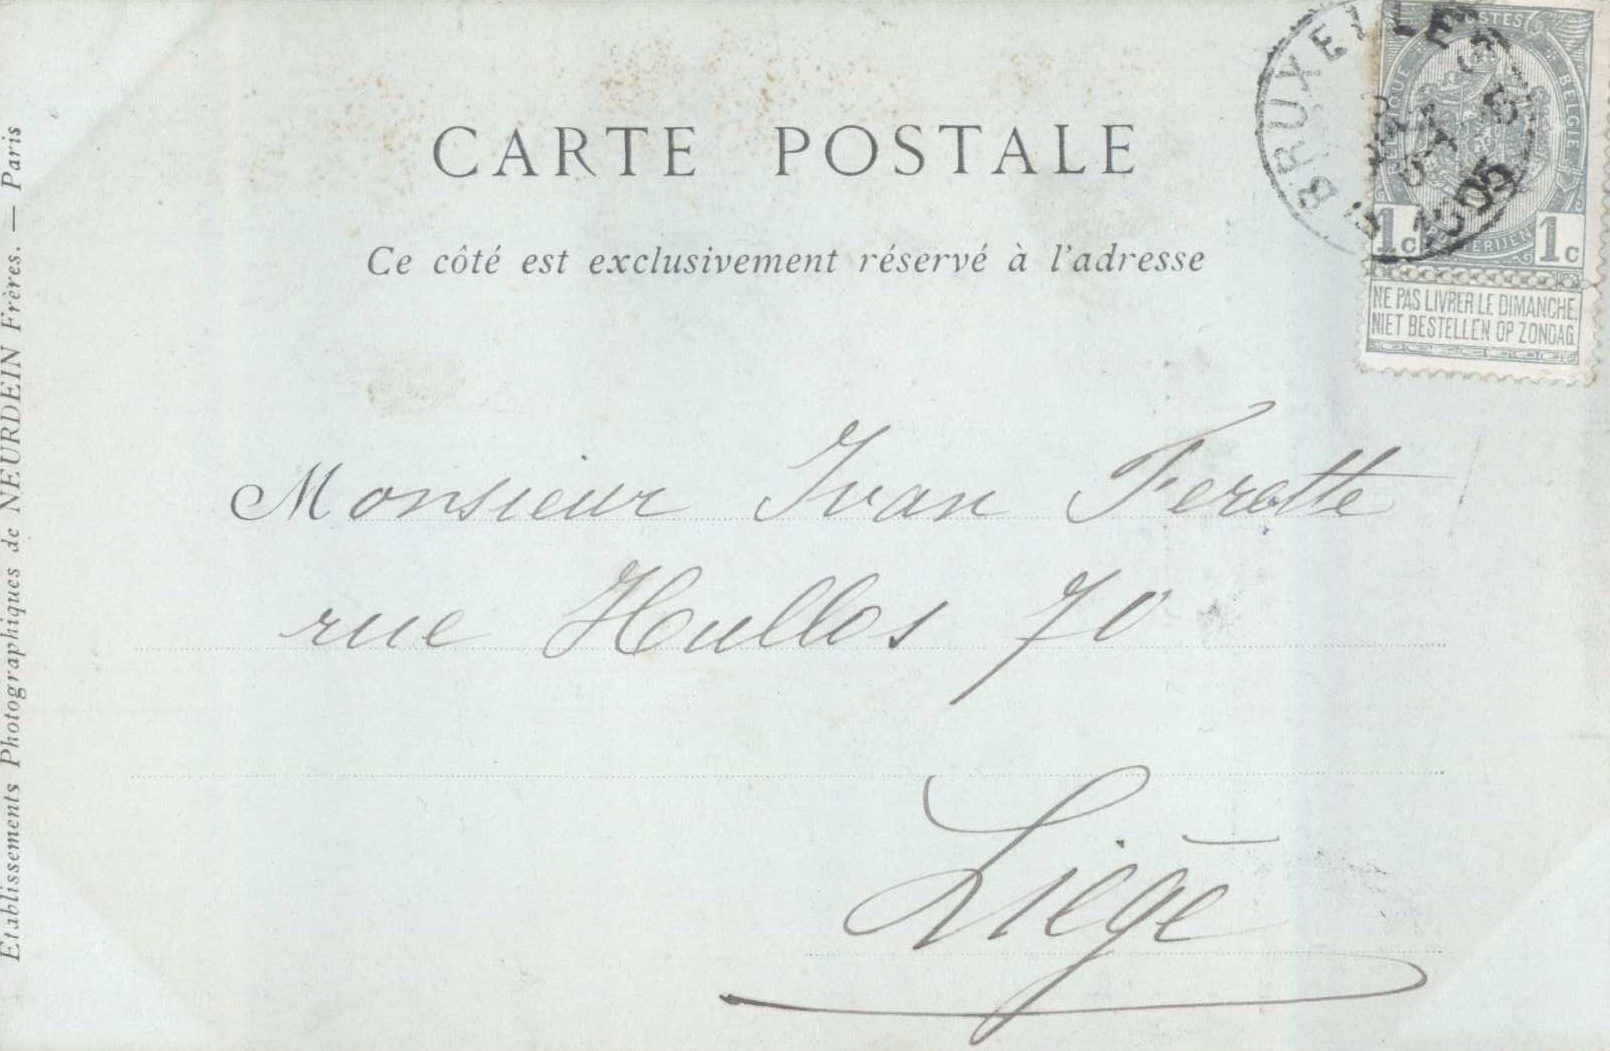 CARTE POSTALE
Ce côté est exclusivement réservé à l'adresse
Monsieur Ivan Ferette
rue Hullos 70
Liége
Etablissements Photographiques de NEURDEIN Frères. — Paris
BRUXELLES
1905
POSTES
BELGIE
1c 1c
NE PAS LIVRER LE DIMANCHE.
NIET BESTELLEN OP ZONDAG.